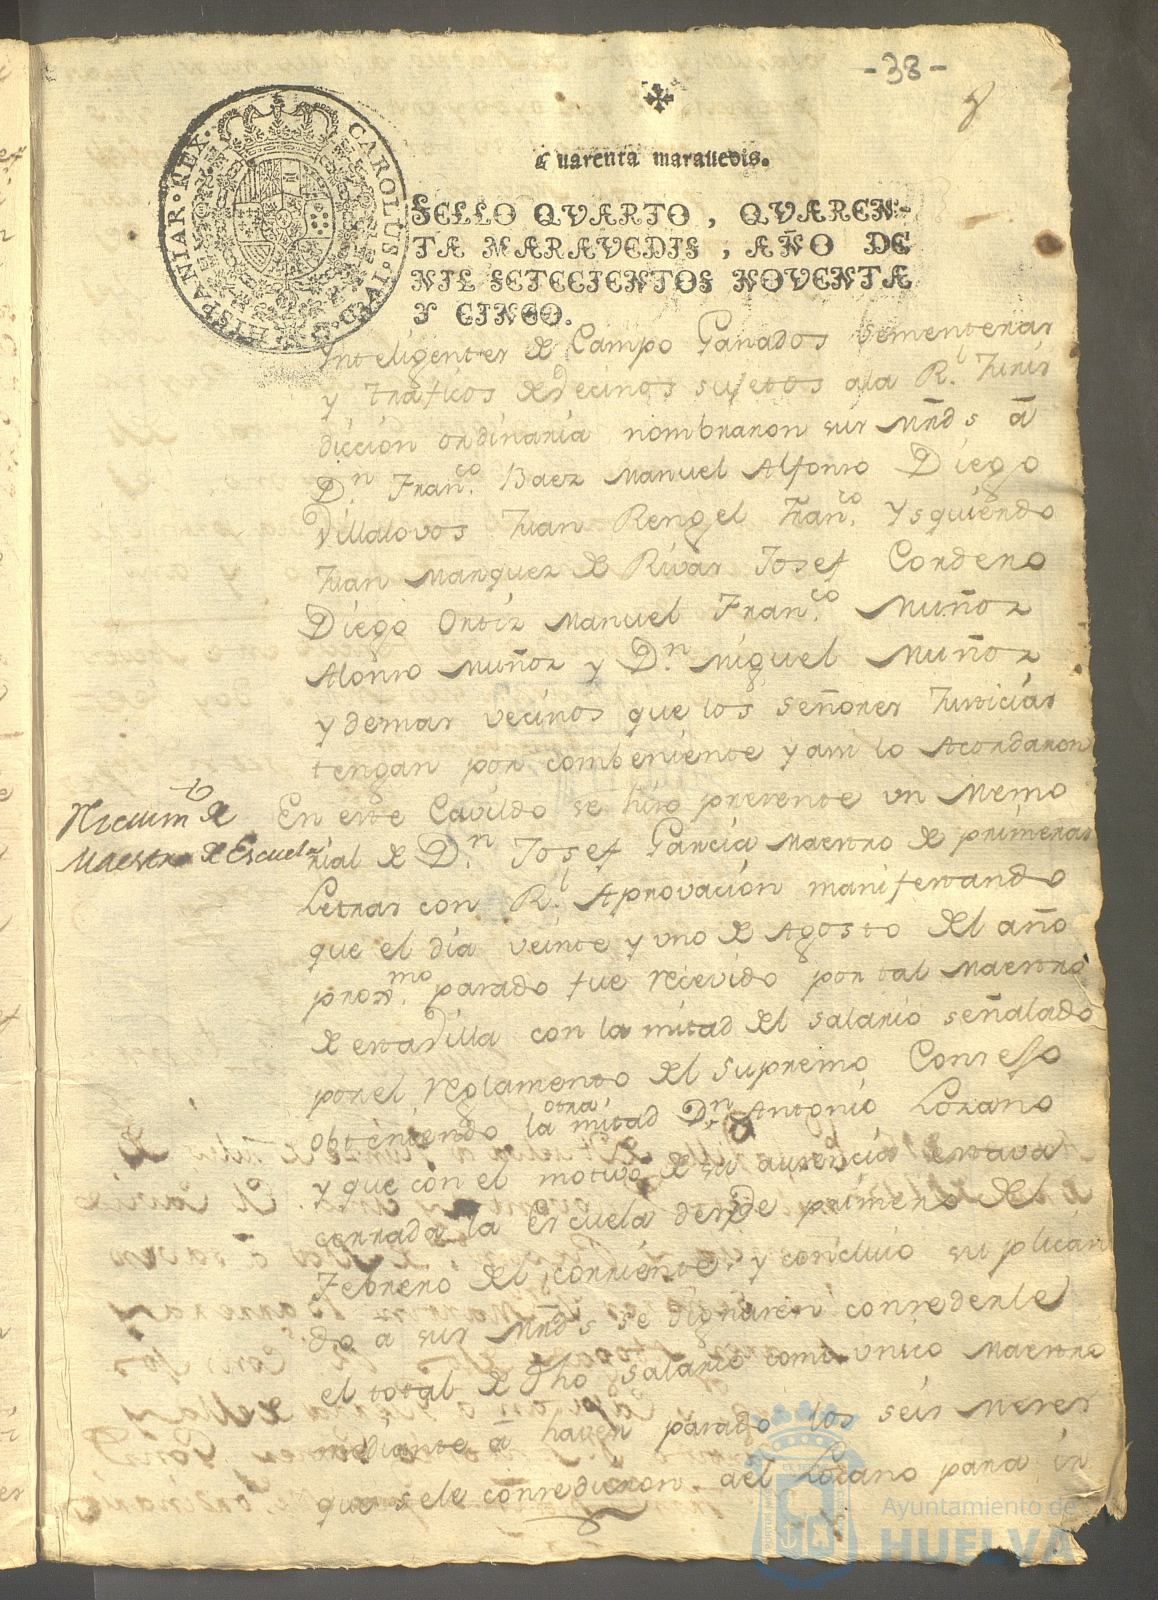 -38-
Cuarenta maravedis.
CAROLUS·IV·D·G·HISPANIAR·REX·
SELLO QVARTO, QVAREN-
TA MARAVEDIS, AÑO DE
MIL SETECIENTOS NOVENTA
Y CINCO.
Inteligentes de Campo Ganados sementeras
y traficos de vecinos sujetos ala Rl. Juris
diccion ordinaria nombraron sus Mrds ā
Dn. Franco. Baez Manuel Alfonso Diego
Villalovos Juan Rengel Franco. Ysquierdo
Juan Marquez de Rivas Josef Cordero
Diego Ortiz Manuel Franco. Muñoz
Alonso Muñoz y Dn. Miguel Muñoz
y demas vecinos que los señores Justicias
tengan por combeniente y assi lo Acordaron
Maestro de Escuela
En este Cavildo se hizo presente un Memo
rial de Dn. Josef Garcia Maestro de primeras
Letras con Rl. Aprovacion manifestando
que el dia veinte y uno de Agosto del año
proxmo. pasado fue recevido por tal Maestro
de esta Villa con la mitad del salario señalado
por el reglamento del Supremo Consejo
obteniendo la otra mitad Dn. Antonio Lozano
y que con el motivo de su ausencia estava
cerrada la Escuela desde primero de
Febrero del corriente, y concluió suplican
do a sus Mrds se dignasen concederle
el total de dho salario como unico Maestro
mediante ā haver pasado los seis meses
que sele concedieron ael Lozano para in
Ayuntamiento de
HUELVA